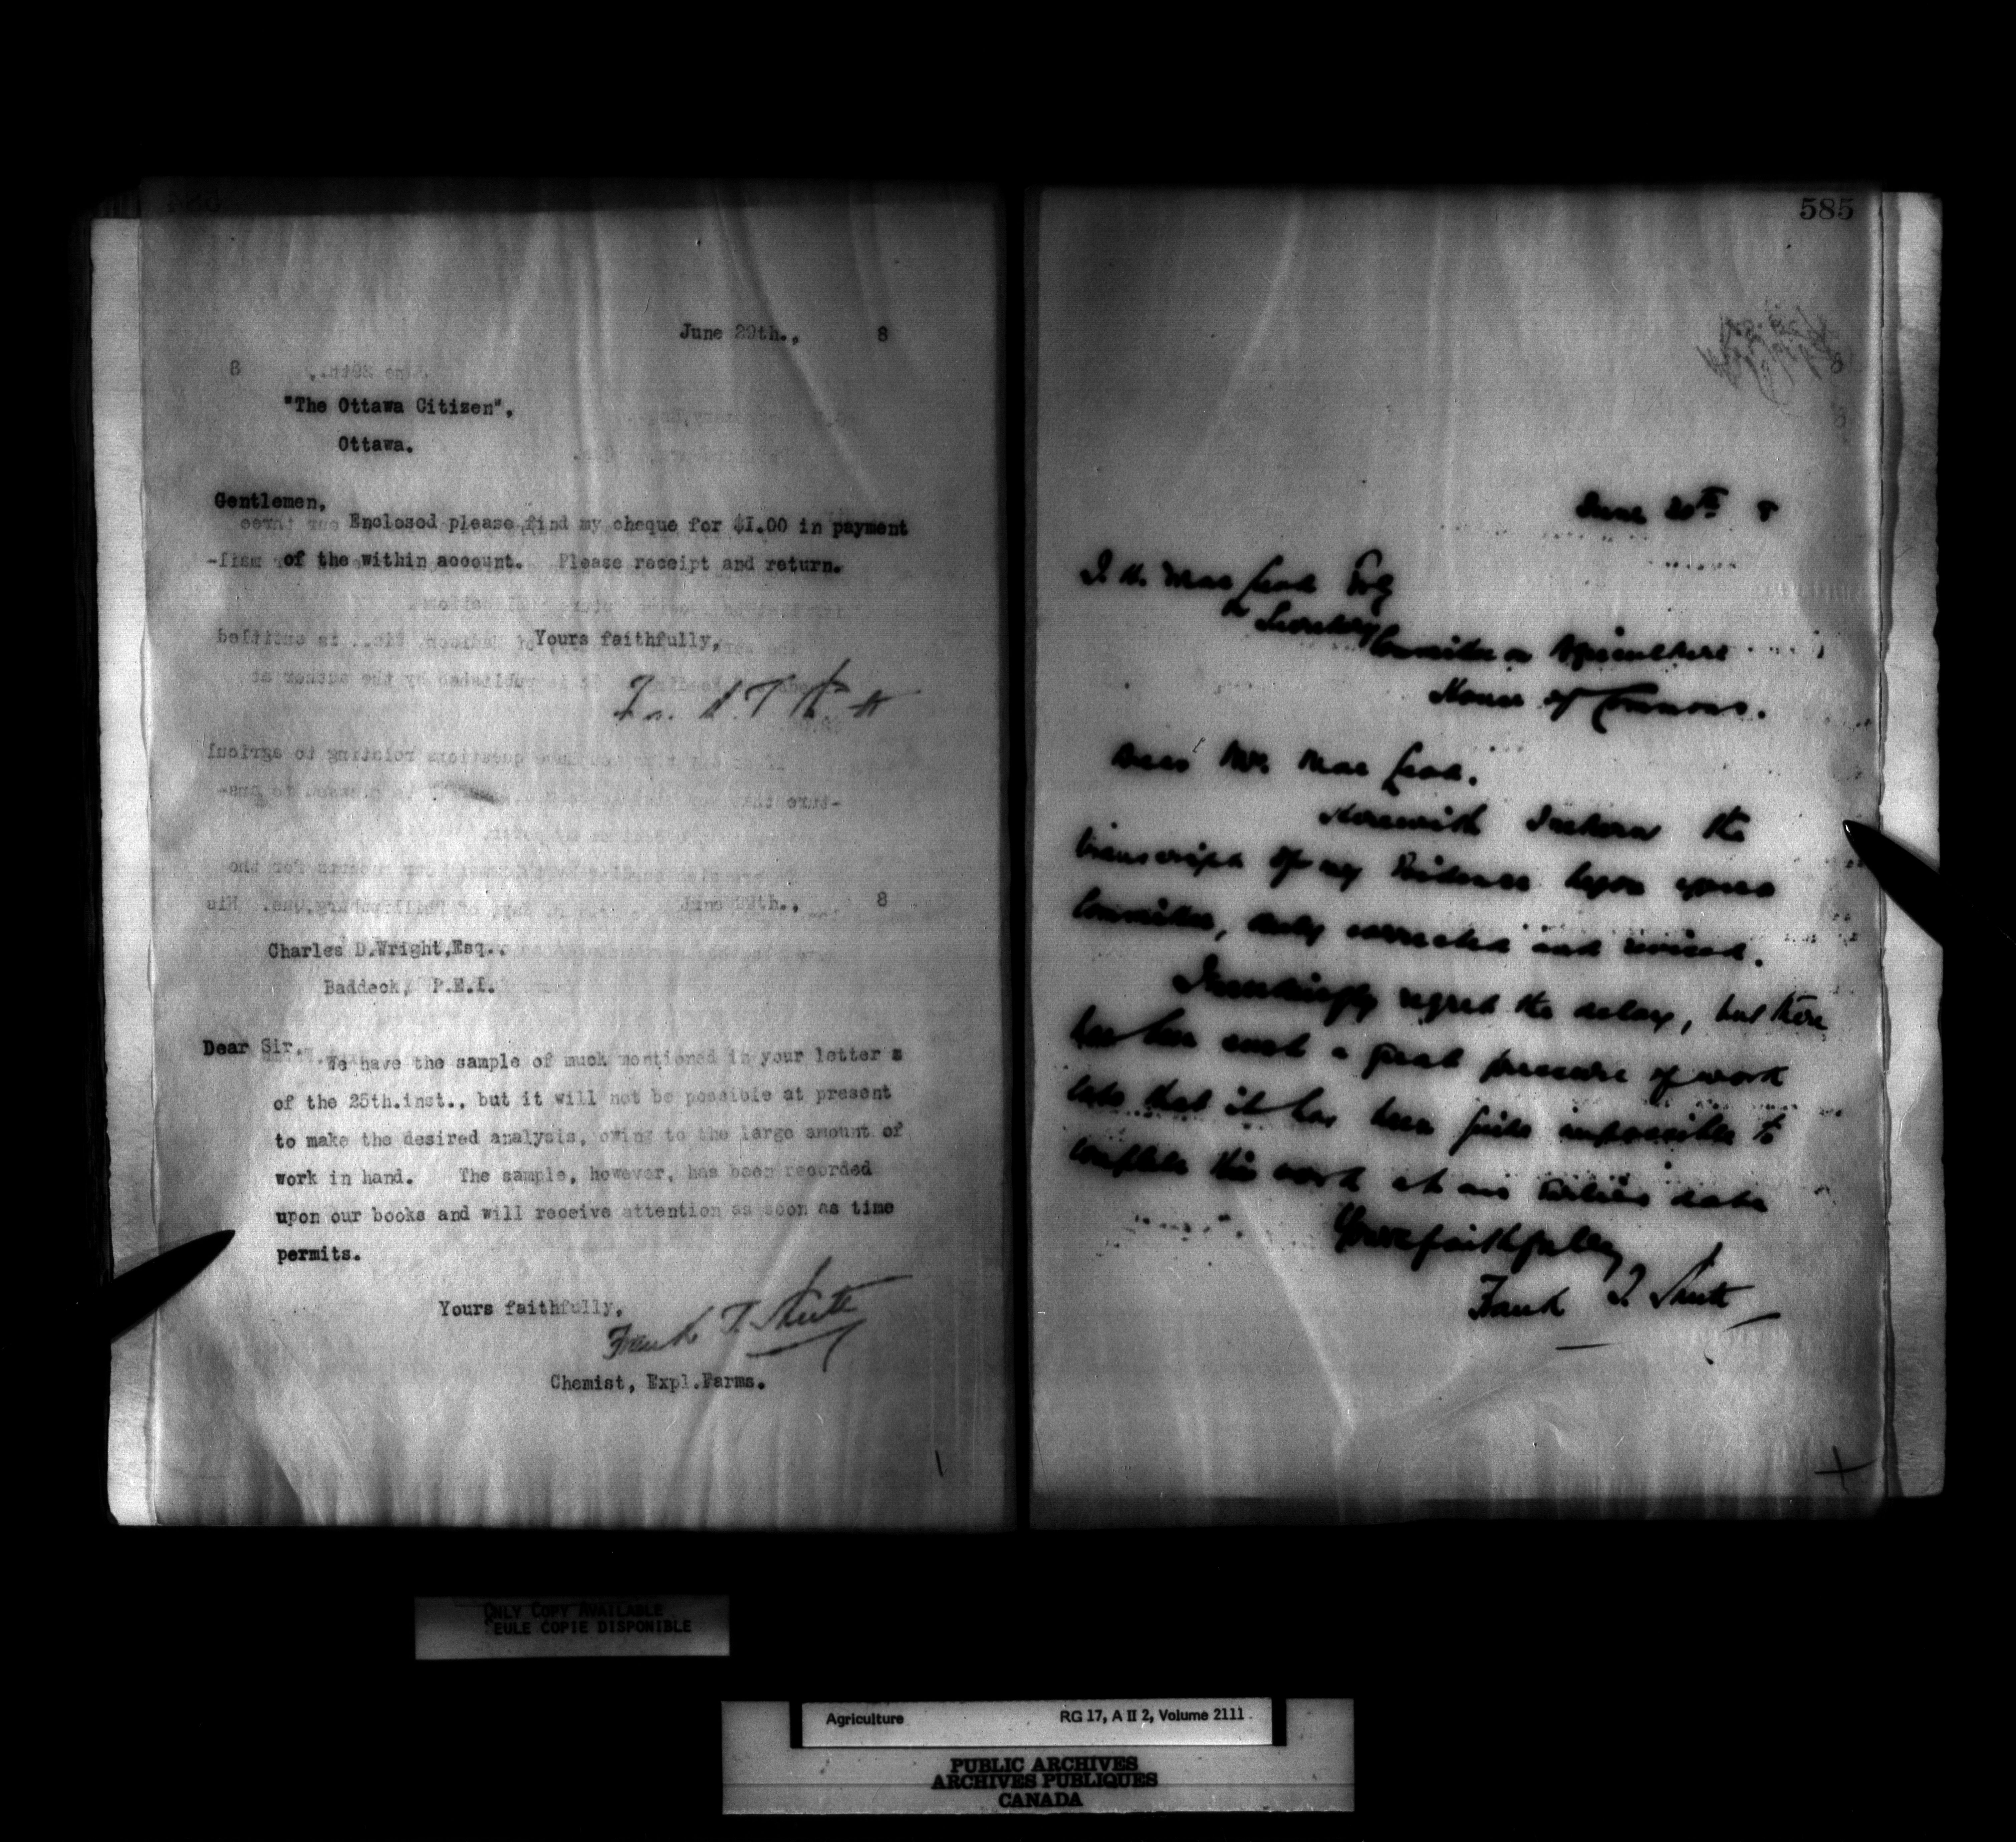 June 29th., 8
"The Ottawa Citizen",
Ottawa.
Gentlemen,
Enclosed please find my cheque for $1.00 in payment
of the within account. Please receipt and return.
Yours faithfully,
June 29th., 8
Charles D.Wright,Esq.,
Baddeck, P.E.I.
Dear Sir,
We have the sample of muck mentioned in your letter s
of the 25th.inst., but it will not be possible at present
to make the desired analysis, owing to the large amount of
work in hand. The sample, however, has been recorded
upon our books and will receive attention as soon as time
permits.
Yours faithfully,
Frank T. Shutt
Chemist, Expl.Farms.
585
June 8
J. H. MacLeod Esq
Secretary
Committee on Agriculture
House of Commons.
Dear Mr. MacLeod.
Herewith I return the
transcript of my Evidence before your
Committee, duly corrected and revised.
I exceedingly regret the delay, but there
has been such a great pressure of work
late that it has been quite impossible to
complete this work at an earlier date
Yours faithfully
Frank T. Shutt
ONLY COPY AVAILABLE
EULE COPIE DISPONIBLE
Agriculture RG 17, A II 2, Volume 2111
PUBLIC ARCHIVES
ARCHIVES PUBLIQUES
CANADA